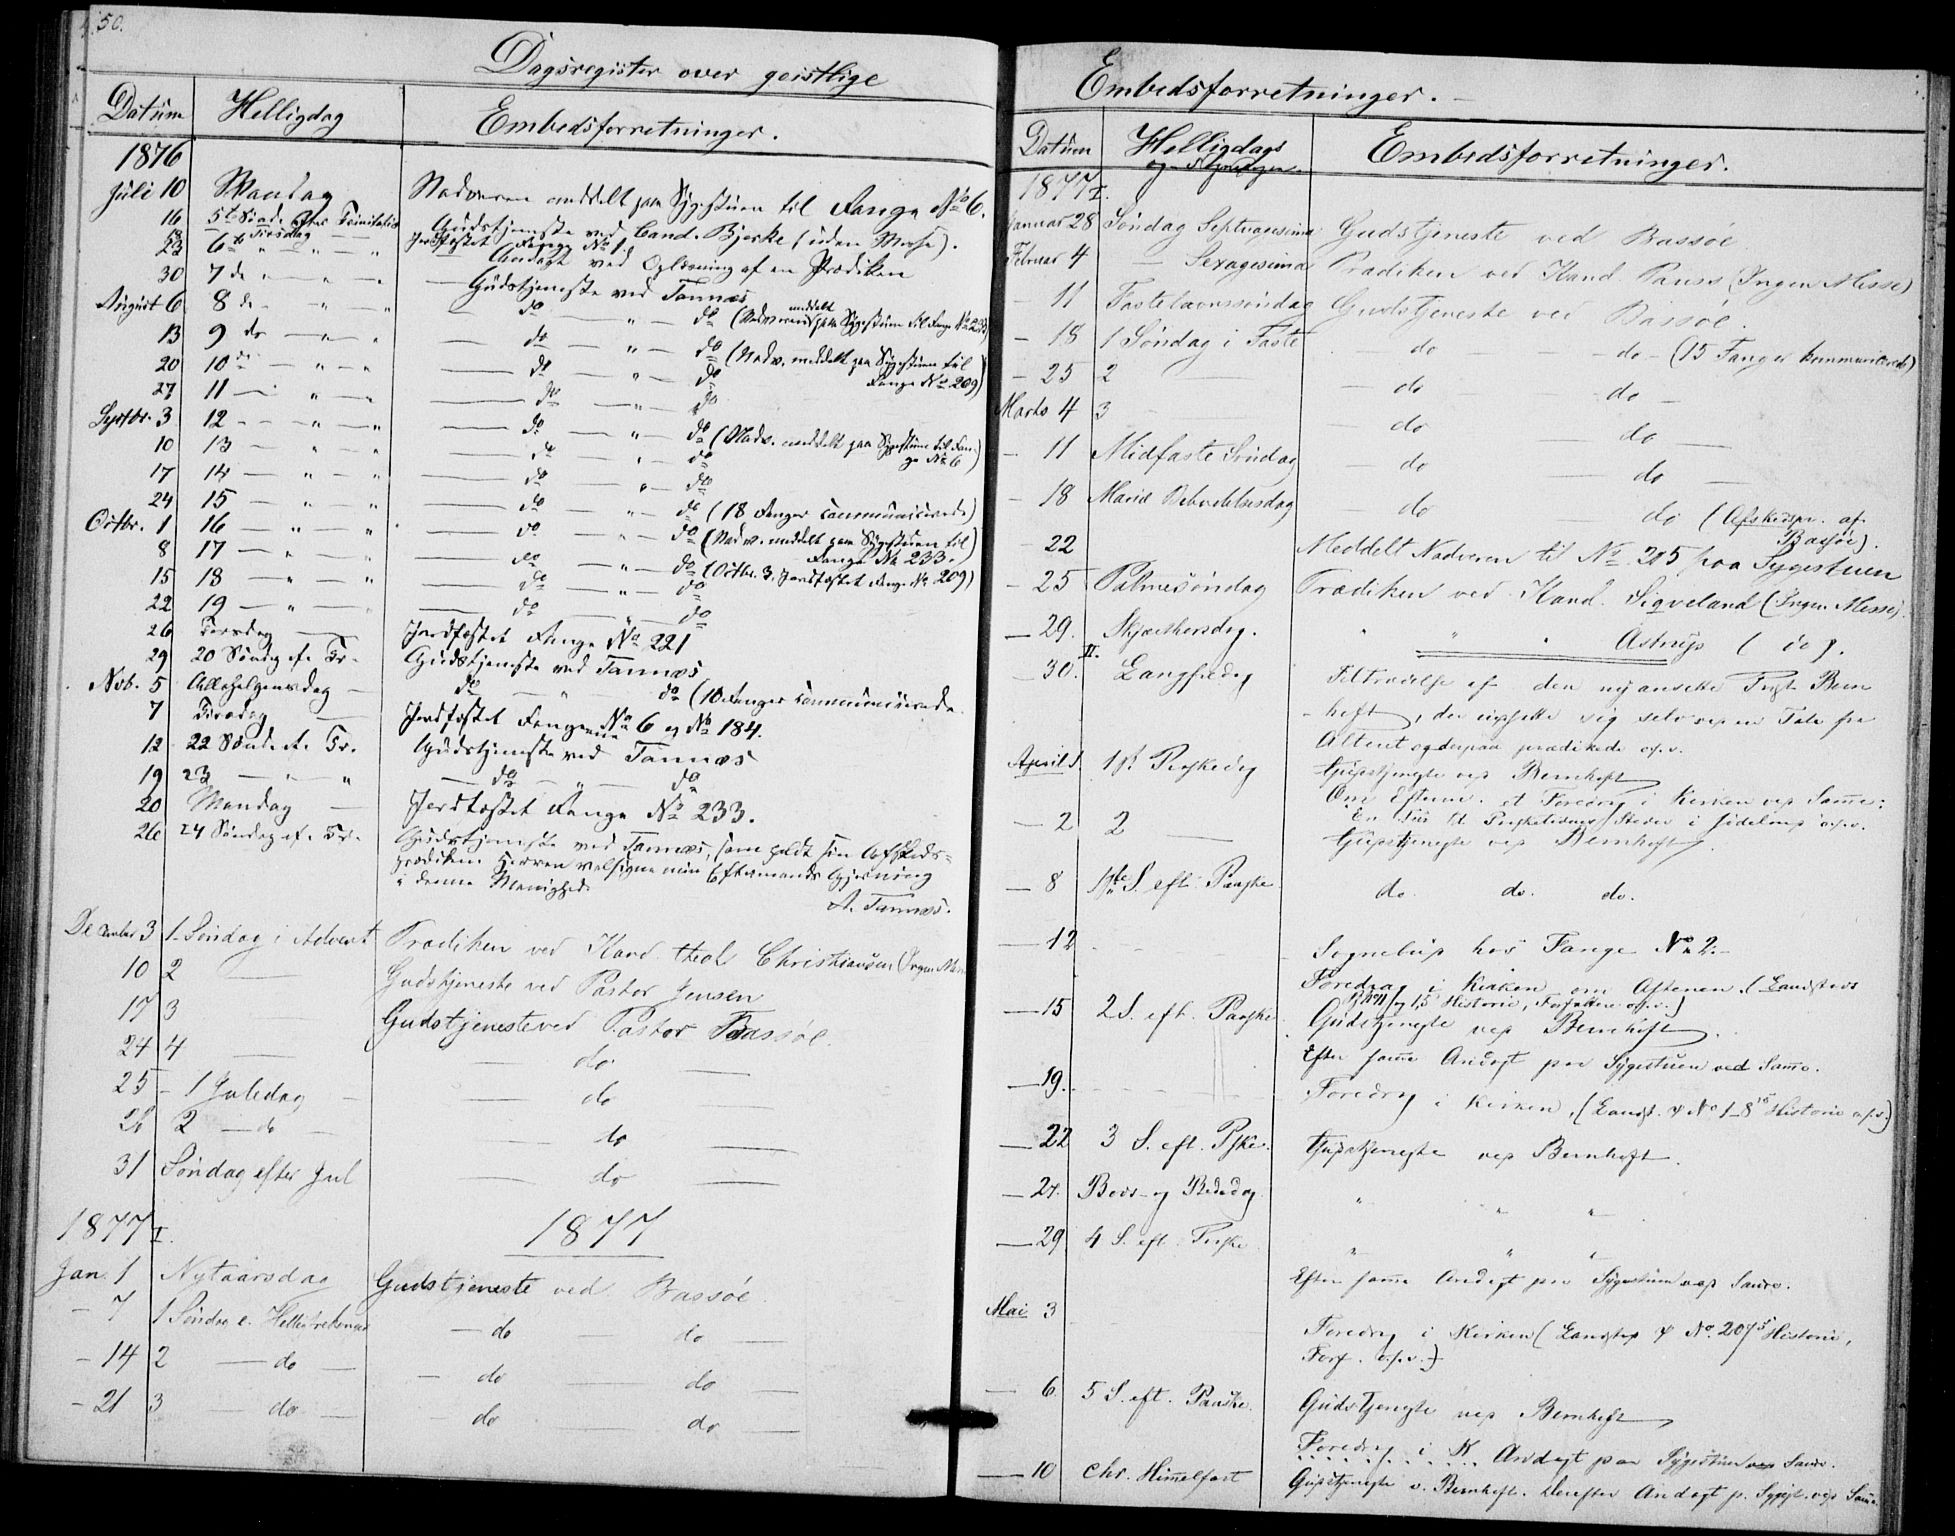 50.
Dagsregister over geistlige
Datum Helligdag Embedsforretninger.
1876
Juli 10 Mandag Nadveren meddelt paa Sygestuen til Fange No 6.
16 5te Sønd. efter Trinitatis Gudstjeneste ved Cand. Bjerke (uden Messe).
18 Tirsdag Jordfæstet Fange No 1.
23 6te " " Andagt ved Oplæsning af en Prædiken
30 7de " " Gudstjeneste ved Tannæs
August 6 8de " " do " do (Nadveren meddelt paa Sygestuen til Fange No 233)
13 9de " " do " do (Nadv. meddelt paa Sygestuen til
20 10de " " do " do Fange No 209)
27 11 " " do " do
Septbr. 3 12 " " do " do (Nadv. meddelt paa Sygestuen til Fan-
10 13 " " do " do ge No 6)
17 14 " " do " do
24 15 " " do " do (18 Fanger communicerede)
Octbr. 1 16 " " do " do (Nadv. meddelt paa Sygestuen til
8 17 " " do " do Fange No 233.)
(Octbr. 3. Jordfæstet Fange No 209)
15 18 " " do " do
22 19 " " do " do
26 Torsdag Jordfæstet Fange No 221
29 20 Søndg ef. Tr. Gudstjeneste ved Tannæs
Nov. 5 Allehelgensdag do " do (10 Fanger communicerede
7 Tirsdag Jordfæstet Fangerne No 6 og No 184.
12 22 Sønd. ef. Tr. Gudstjeneste ved Tannæs
19 23 " " do " do
20 Mandag Jordfæstet Fange No 233.
26 24 Søndag ef. Tr. Gudstjeneste ved Tannæs, som holdt sin Afskeds-
prædiken Herren velsigne min Eftermands Gjerning
i denne Menighed.
A. Tannæs.
December 3 1. Søndag i Advent Prædiken ved Kand. theol. Christiansen (Ingen Messe
10 2 Gudstjeneste ved Pastor Jensen
17 3 Gudstjeneste ved Pastor Bassøe.
24 4 do
25 - 1 Juledag do
26 2 do do
31 Søndag efter Jul do
1877 I. 1877
Jan. 1 Nytaarsdag Gudstjeneste ved Bassøe.
- 7 1 Søndag e. Hellig 3 do do
- 14 2 do do do
- 21 3 do do do
Embedsforretninger.
Datum Helligdags Embedsforretninger.
1877 I.
Januar 28 Søndag Septuagesima Gudstjeneste ved Bassøe
Februar 4 Sexagesima Prædiken ved Kand. Pauss (Ingen Messe)
- 11 Fastelavnssøndag Gudstjeneste ved Bassøe.
- 18 1 Søndag i Faste do do (15 Fanger kommunicerede)
- 25 2 do do
Marts 4 3 do do
- 11 Midfaste Søndag do do
- 18 Mariæ Bebudelsesdag do do (Afskedspr. af
Bassøe).
- 22 Meddelt Nadveren til No 205 paa Sygestuen
- 25 Palmesøndag Prædiken ved Kand. Sigveland (Ingen Messe).
- 29. Skjærthorsdg. " " " Astrup (do).
II.
- 30. Langfredag Tiltrædelse af den nyansatte Præst Bern
-hoft, der indsatte sig selv ved en Tale fra
Alteret og derpaa prædikede o.s.v.
April 1 1st Paaskedag Gudstjeneste ved Bernhoft
Om Efterm. et Foredrag i Kirken ved Samme:
- 2 2 Gudstjeneste ved Bernhoft.
- 8 1ste S. eft. Paaske do. do. do.
- 12 Sognebud hos Fange No 2.
Foredrag i Kirken om Aftenen. (Landstads
Historie, Forfattere o.s.v.)
- 15 2 S. eft. Paaske Gudstjeneste ved Bernhoft.
Efter samme Andagt paa Sygestuen ved Samme.
- 19. Foredrag i Kirken. (Landst. Ψ No 1-8 Historie o.s.v.)
- 22 3 S. eft. Pske. Gudstjeneste ved Bernhoft.
- 27. Bods- og Bededag. " " "
- 29 4 S. eft. Paaske " " "
Efter samme Andagt paa Sygestuen ved Samme.
Mai 3 Foredrag i Kirken (Landstads Ψ No. 207 Historie,
Forf. o.s.v.)
- 6. 5 S. eft. Paaske. Gudstjeneste ved Bernhoft
Foredrag i K. Andagt paa Sygestuen ved Samme.
- 10 Chr. Himmelfart Gudstjeneste v. Bernhoft. Derefter Andagt p. Sygest. ved Samme.